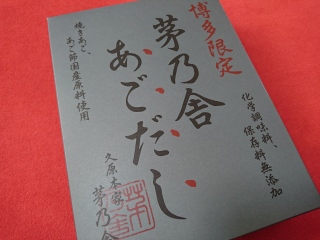 博多限定
茅乃舎
あごだし
化学調味料、
保存料無添加
焼きあご、
あご節国産原料使用
久原本家
茅乃舎